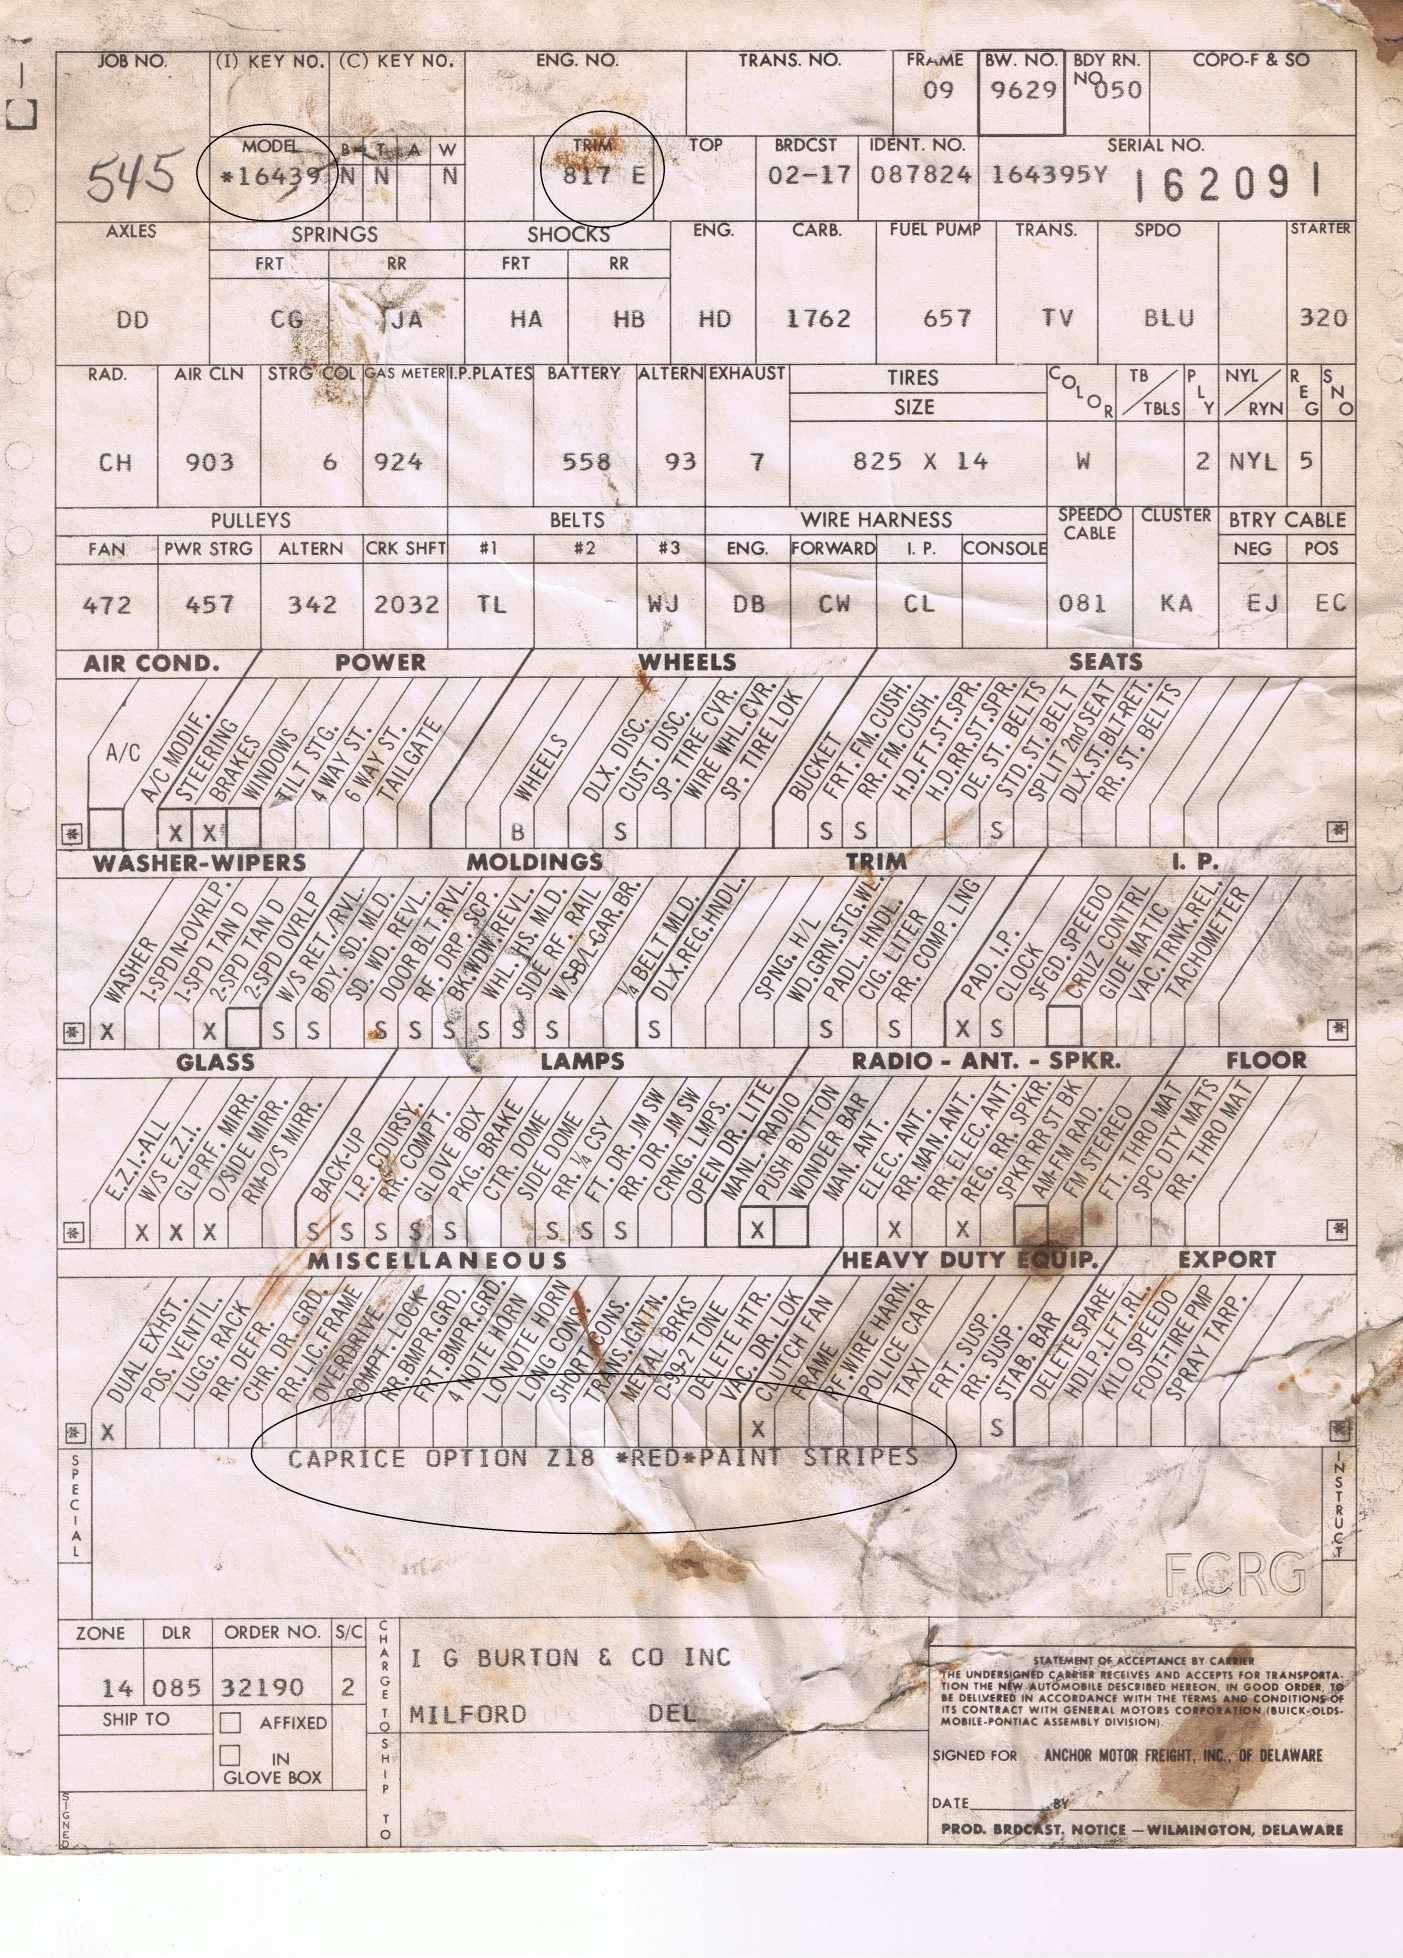 JOB NO. (I) KEY NO. (C) KEY NO. ENG. NO. TRANS. NO. FRAME BW. NO. BDY RN. NO. COPO-F & SO
09 9629 050
MODEL B T A W TRIM TOP BRDCST IDENT. NO. SERIAL NO.
545 *16439 N N N 817 E 02-17 087824 164395Y 162091
AXLES SPRINGS SHOCKS ENG. CARB. FUEL PUMP TRANS. SPDO STARTER
FRT RR FRT RR
DD CG JA HA HB HD 1762 657 TV BLU 320
RAD. AIR CLN STRG COL GAS METER I.P.PLATES BATTERY ALTERN EXHAUST TIRES COLOR TB/TBLS PLY NYL/RYN REG SNO
SIZE
CH 903 6 924 558 93 7 825 X 14 W 2 NYL 5
PULLEYS BELTS WIRE HARNESS SPEEDO CABLE CLUSTER BTRY CABLE
FAN PWR STRG ALTERN CRK SHFT #1 #2 #3 ENG. FORWARD I. P. CONSOLE NEG POS
472 457 342 2032 TL WJ DB CW CL 081 KA EJ EC
AIR COND. POWER WHEELS SEATS
A/C A/C MODIF. STEERING BRAKES WINDOWS TILT STG. 4 WAY ST. 6 WAY ST. TAILGATE WHEELS DLX. DISC. CUST. DISC. SP. TIRE CVR. WIRE WHL.CVR. SP. TIRE LOK BUCKET FRT. FM. CUSH. RR. FM. CUSH. H.D.FT.ST.SPR. H.D.RR.ST.SPR. DE. ST. BELTS STD. ST. BELT SPLIT 2nd SEAT DLX.ST.BLT-RET. RR. ST. BELTS
* X X B S S S S *
WASHER-WIPERS MOLDINGS TRIM I. P.
WASHER 1-SPD N-OVRLP. 1-SPD TAN D 2-SPD TAN D 2-SPD OVRLP W/S RET./RVL. BDY. SD. MLD. SD. WD. REVL. DOOR BLT. RVL. RF. DRP. SCP. BK.WDW.REVL. WHL. HS. MLD. SIDE RF. RAIL W/S-B/L-GAR.BR. ¼ BELT MLD. DLX.REG.HNDL. SPNG. H/L WD.GRN.STG.WL. PADL. HNDL. CIG. LITER RR. COMP. LNG PAD. I.P. CLOCK SFGD. SPEEDO CRUZ CONTRL GIDE MATIC VAC. TRNK.REL. TACHOMETER
* X X S S S S S S S S S S S X S *
GLASS LAMPS RADIO - ANT. - SPKR. FLOOR
E.Z.I.-ALL W/S E.Z.I. GLPRF. MIRR. O/SIDE MIRR. RM-O/S MIRR. BACK-UP I.P. COURSY. RR. COMPT. GLOVE BOX PKG. BRAKE CTR. DOME SIDE DOME RR. ¼ CSY FT. DR. JM SW RR. DR. JM SW CRNG. LMPS. OPEN DR. LITE MANL. RADIO PUSH BUTTON WONDER BAR MAN. ANT. ELEC. ANT. RR. MAN. ANT. RR. ELEC. ANT. REG. RR. SPKR. SPKR RR ST BK AM-FM RAD. FM STEREO FT. THRO MAT SPC DTY MATS RR. THRO MAT
* X X X S S S S S S S S X X X *
MISCELLANEOUS HEAVY DUTY EQUIP. EXPORT
DUAL EXHST. POS. VENTIL. LUGG. RACK RR. DEFR. CHR. DR. GRD. RR.LIC.FRAME OVERDRIVE COMPT. LOCK RR.BMPR.GRD. FRT.BMPR.GRD. 4 NOTE HORN LO NOTE HORN LONG CONS. SHORT CONS. TRANS.IGNTN. METAL BRKS D-99-2 TONE DELETE HTR. VAC. DR. LOK CLUTCH FAN FRAME RF. WIRE HARN. POLICE CAR TAXI FRT. SUSP. RR. SUSP. STAB. BAR DELETE SPARE HDLP.LFT.RL. KILO SPEEDO FOOT-TIRE PMP SPRAY TARP.
* X X S *
SPECIAL CAPRICE OPTION Z18 *RED*PAINT STRIPES INSTRUCT
FCRG
ZONE DLR ORDER NO. S/C CHARGE TO SHIP TO
14 085 32190 2
I G BURTON & CO INC
MILFORD DEL
SHIP TO AFFIXED
IN GLOVE BOX
SIGNED
STATEMENT OF ACCEPTANCE BY CARRIER
THE UNDERSIGNED CARRIER RECEIVES AND ACCEPTS FOR TRANSPORTA-
TION THE NEW AUTOMOBILE DESCRIBED HEREON, IN GOOD ORDER, TO
BE DELIVERED IN ACCORDANCE WITH THE TERMS AND CONDITIONS OF
ITS CONTRACT WITH GENERAL MOTORS CORPORATION (BUICK-OLDS-
MOBILE-PONTIAC ASSEMBLY DIVISION).
SIGNED FOR ANCHOR MOTOR FREIGHT, INC., OF DELAWARE
DATE BY
PROD. BRDCAST. NOTICE — WILMINGTON, DELAWARE